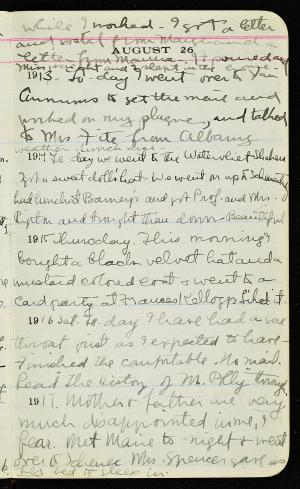 while I worked - I got a letter
and postal from Marge and a
letter from Mamma - It poured
AUGUST 26
Miss night and I went into
1913. To-day I went over to Van
Annums to get the mail and
worked on my plague, and talked
to Mrs Fite from Albany
weather - lunch
1914 To day we went to the Watervliet Shakers
& got a sweat doll's hat. We went on up to Schenectady
had lunch at Barney's and got Prof. and Mrs.
Upton and brought them down - Beautiful
1915 Thursday. This morning I
bought a black velvet hat and a
mustard colored coat & went to a
card party at Frances Kellogg's. Sched. t.
1916 Sat. To-day I have had a sore
throat just as I expected to have -
Finished the comfortable. No mail.
Read "The History of Mr. Polly" through
1917. Mother & father are very
much disappointed in me, I
fear. Met Marie to-night & went
over to Schenec. Mrs. Spencer gave us
her bed to sleep in.